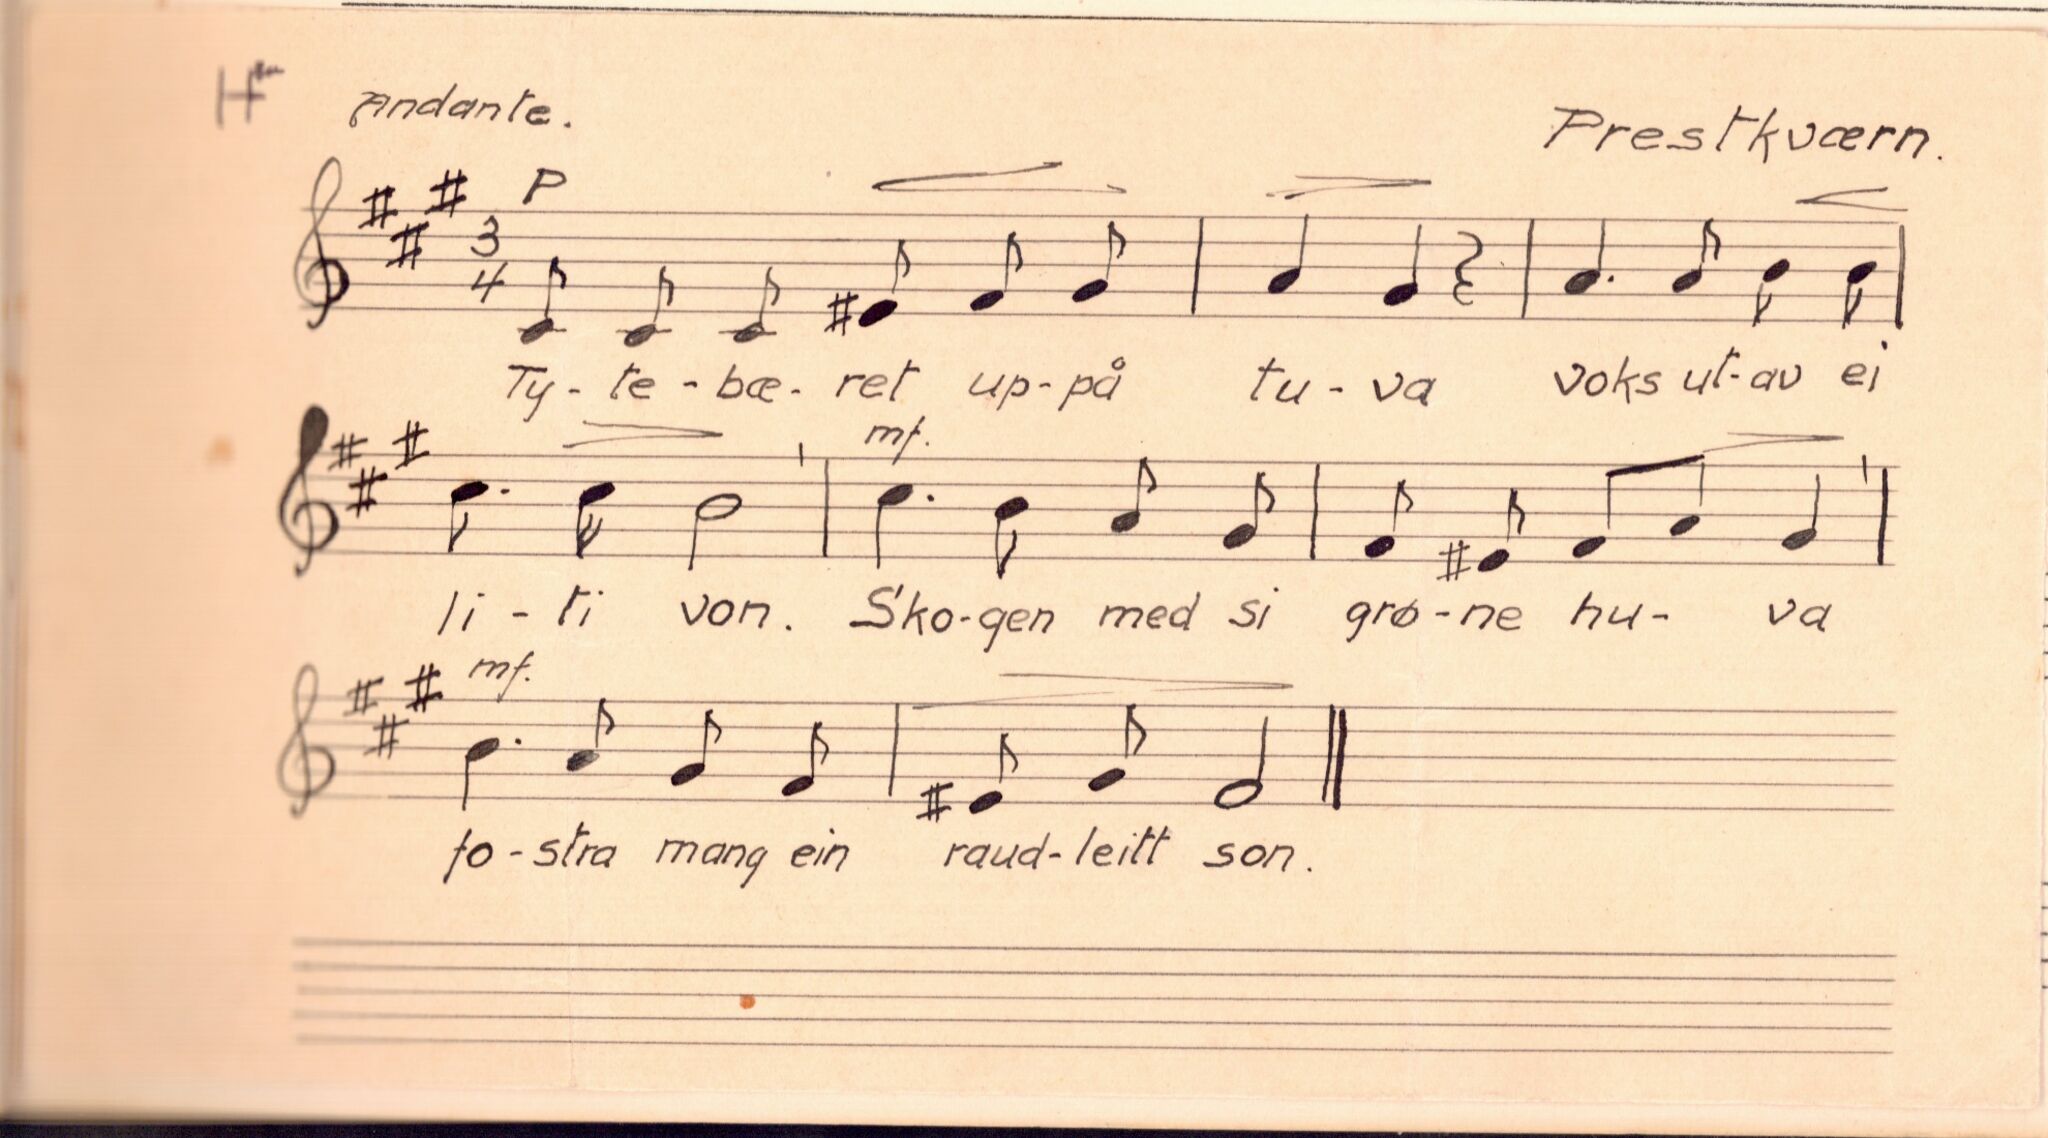 Andante.
Prestkværn.
P
3
4
Ty-te-bæ-ret up-på tu-va voks ut-av ei
mf.
li-ti von. Sko-gen med si grø-ne hu-va
mf.
fo-stra mang ein raud-leitt son.